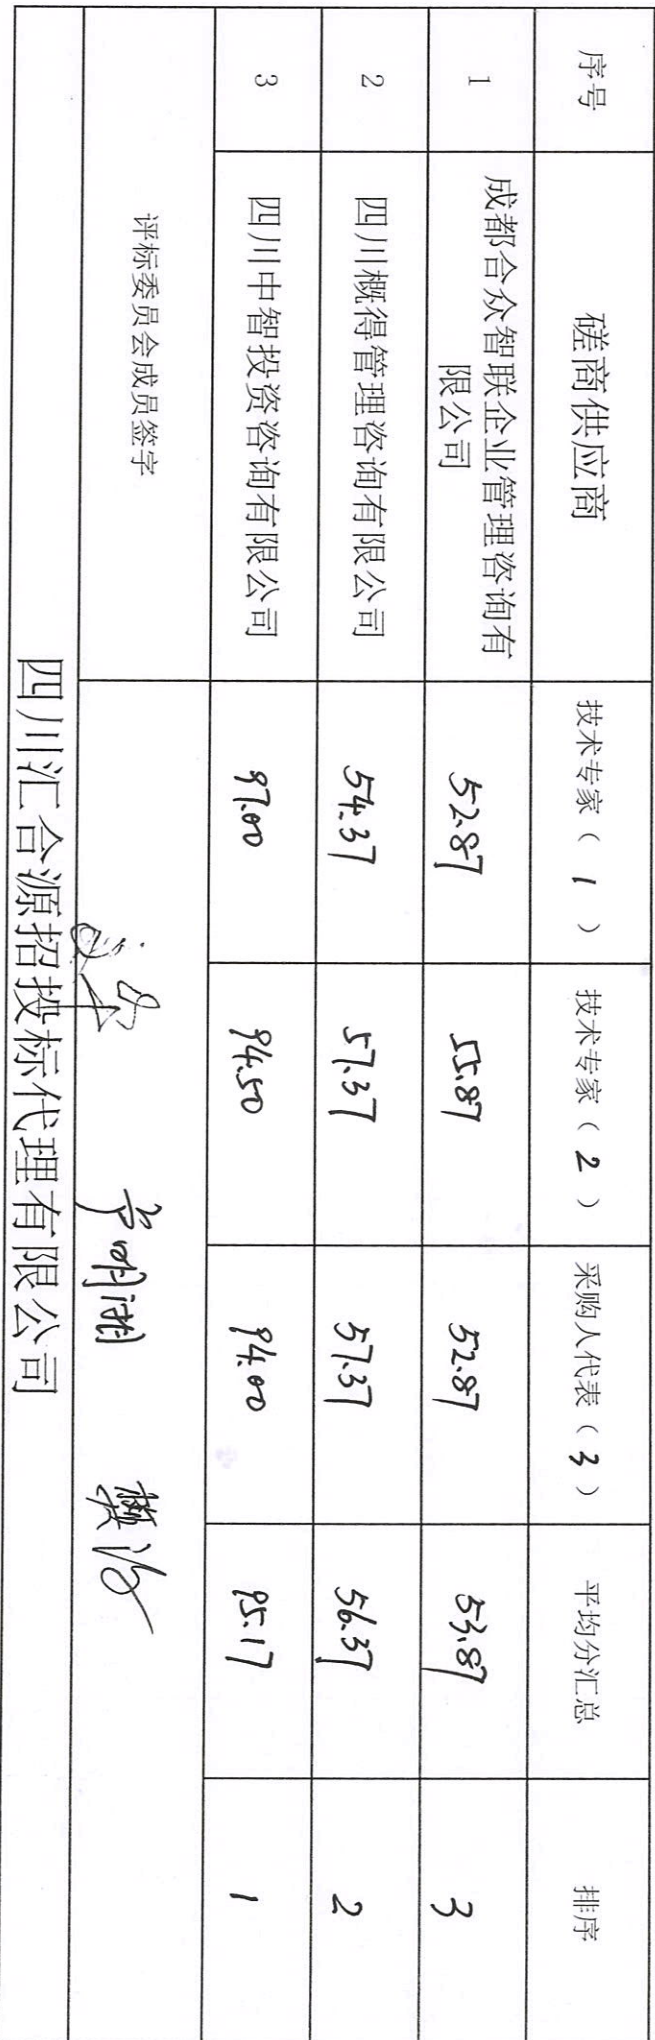 序号 磋商供应商 技术专家（ 1 ） 技术专家（ 2 ） 采购人代表（ 3 ） 平均分汇总 排序
1 成都合众智联企业管理咨询有
限公司 52.87 55.87 52.87 53.87 3
2 四川概得管理咨询有限公司 54.37 57.37 57.37 56.37 2
3 四川中智投资咨询有限公司 97.00 94.50 94.00 95.17 1
评标委员会成员签字
四川汇合源招投标代理有限公司